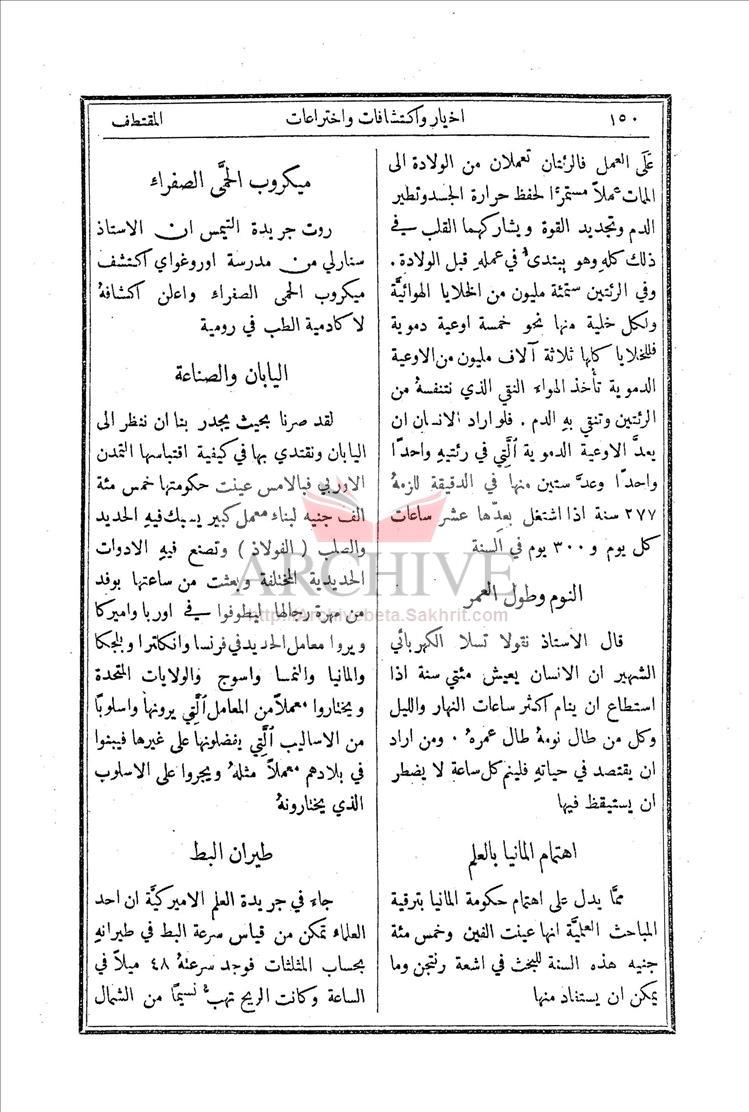 ١٥٠
اخبار واكتشافات واختراعات
المقتطف
عَلَى العمل فالرئتان تعملان من الولادة الى
المات عملاً مستمرًّا لحفظ حرارة الجسد وتطهير
الدم وتجديد القوة ويشاركهما القلب في
ذلك كلهِ وهو يبتدئُ في عملهِ قبل الولادة .
وفي الرئتين ستمئة مليون من الخلايا الهوائيَّة
ولكل خلية منها نحو خمسة اوعية دموية
فللخلايا كلها ثلاثة آلاف مليون من الاوعية
الدموية تأخذ الهواء النقي الذي نتنفسهُ من
الرئتين وتنقي بهِ الدم . فلو اراد الانسان ان
يعدَّ الاوعية الدموية اَلَّتِي في رئتيهِ واحدًا
واحدًا وعدَّ ستين منها في الدقيقة للزمهُ
٢٧٧ سنة اذا اشتغل بعدّها عشر ساعات
كل يوم و ٣٠٠ يوم في السنة
النوم وطول العمر
قال الاستاذ نقولا تسلا الكهربائي
الشهير ان الانسان يعيش مئتي سنة اذا
استطاع ان ينام اكثر ساعات النهار والليل
وكل من طال نومهُ طال عمرهُ . ومن اراد
ان يقتصد في حياتهِ فلينم كل ساعة لا يضطر
ان يستيقظ فيها
اهتمام المانيا بالعلم
ممَّا يدل على اهتمام حكومة المانيا بترقية
المباحث العلميَّة انها عينت الفين وخمس مئة
جنيه هذه السنة للبحث في اشعة رنتجن وما
يمكن ان يستفاد منها
ميكروب الحمَّى الصفراء
روت جريدة التيمس ان الاستاذ
سنارلي من مدرسة اوروغواي اكتشف
ميكروب الحمى الصفراء واعلن اكتشافهُ
لاكادمية الطب في رومية
اليابان والصناعة
لقد صرنا بحيث يجدر بنا ان ننظر الى
اليابان ونقتدي بها في كيفية اقتباسها التمدن
الاوربي فبالامس عينت حكومتها خمس مئة
الف جنيه لبناء معمل كبير يسبك فيهِ الحديد
والصلب ( الفولاذ ) وتصنع فيهِ الادوات
الحديدية المختلفة وبعثت من ساعتها بوفد
من مهرة رجالها ليطوفوا في اوربا واميركا
ويروا معامل الحديد في فرنسا وانكلترا وبلجكا
والمانيا والنمسا واسوج والولايات المتحدة
ويختاروا معملاً من المعامل اَلَّتِي يرونها واسلوبًا
من الاساليب اَلَّتِي يفضلونها على غيرها فيبنوا
في بلادهم معملاً مثلهُ ويجروا على الاسلوب
الذي يختارونهُ
طيران البط
جاءَ في جريدة العلم الاميركيَّة ان احد
العلماء تمكن من قياس سرعة البط في طيرانهِ
بحساب المثلثات فوجد سرعتهُ ٤٨ ميلاً في
الساعة وكانت الريح تهبُّ نسيمًا من الشمال
ARCHIVE
http://Archivebeta.Sakhrit.com